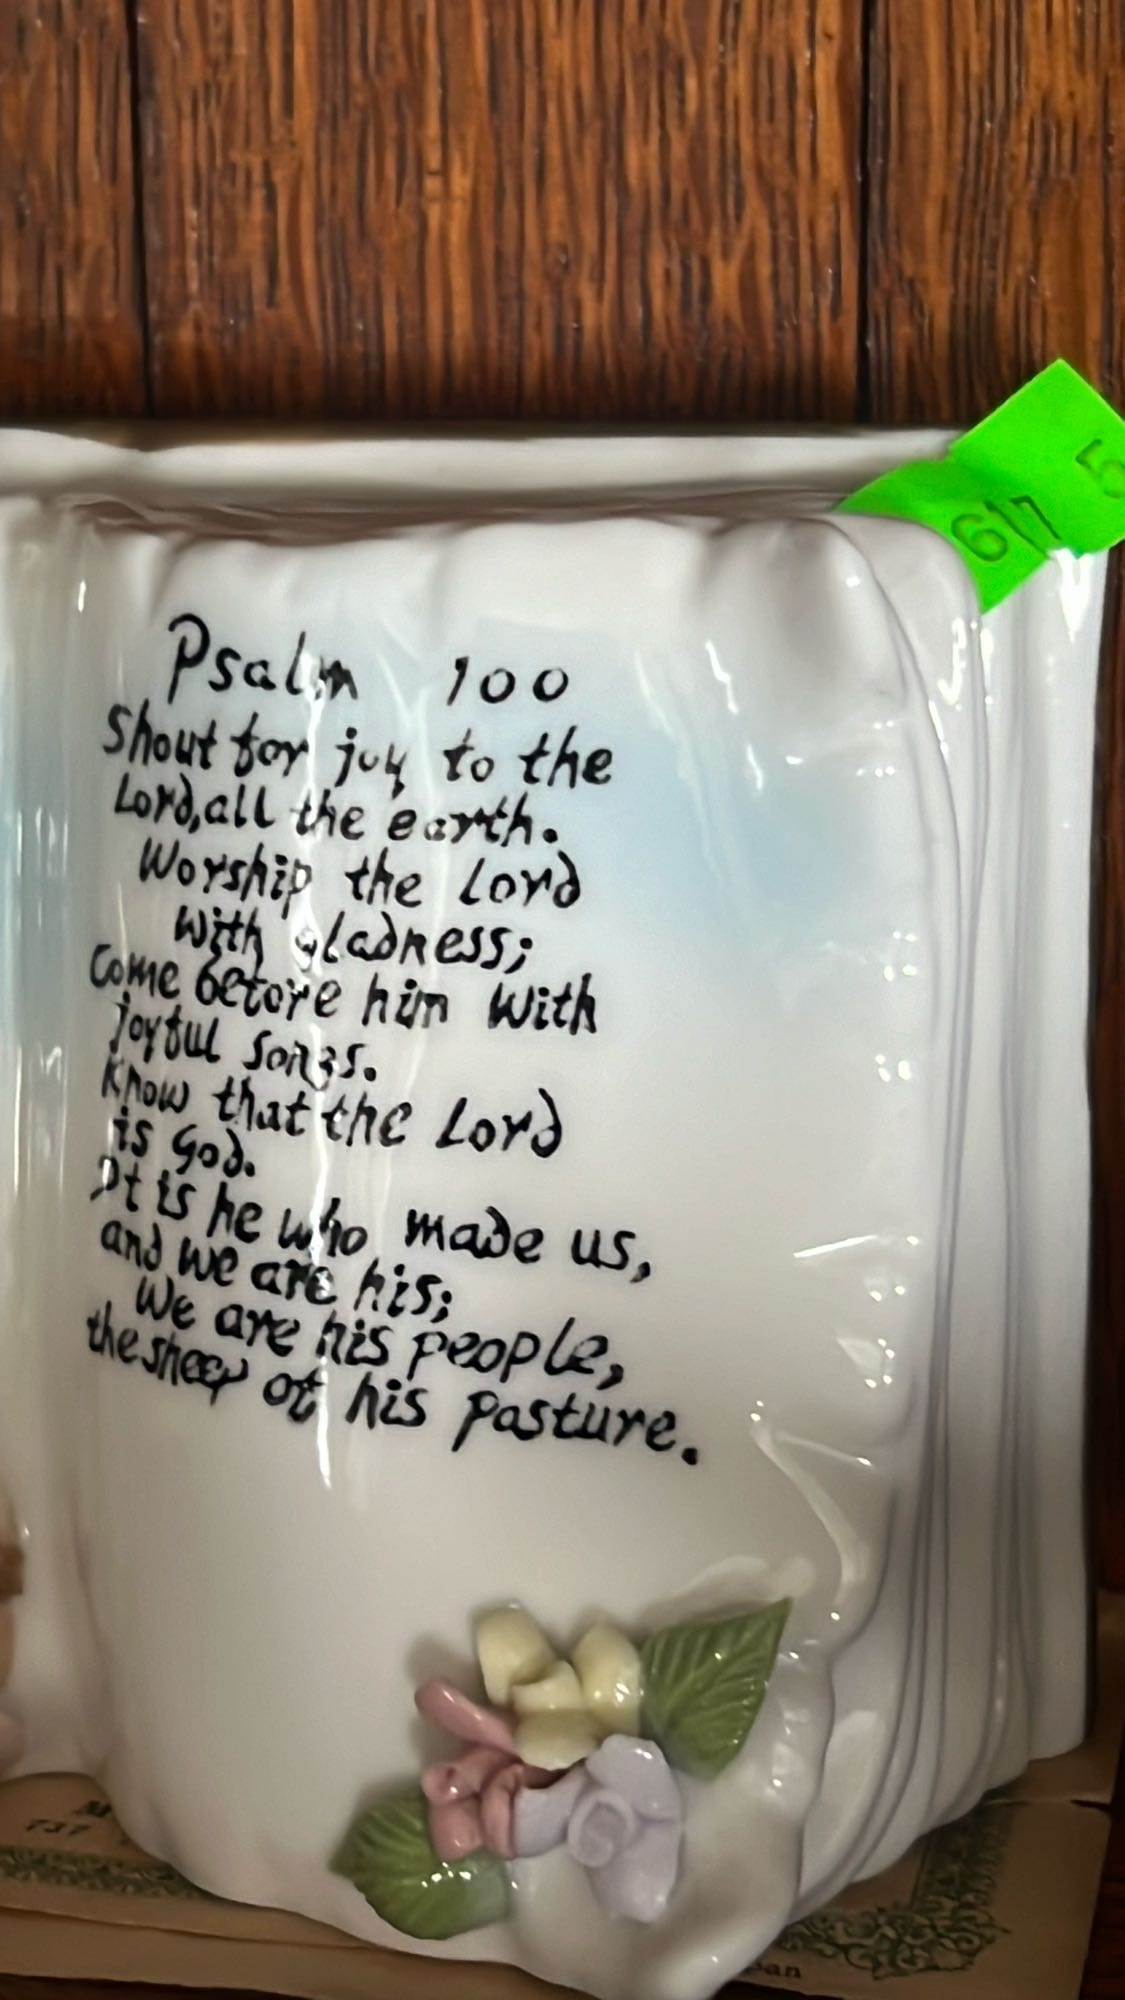 617 5
Psalm 100
Shout for joy to the
Lord, all the earth.
Worship the Lord
with gladness;
Come before him with
joyful songs.
Know that the Lord
is God.
It is he who made us,
and we are his;
We are his people,
the sheep of his pasture.
737